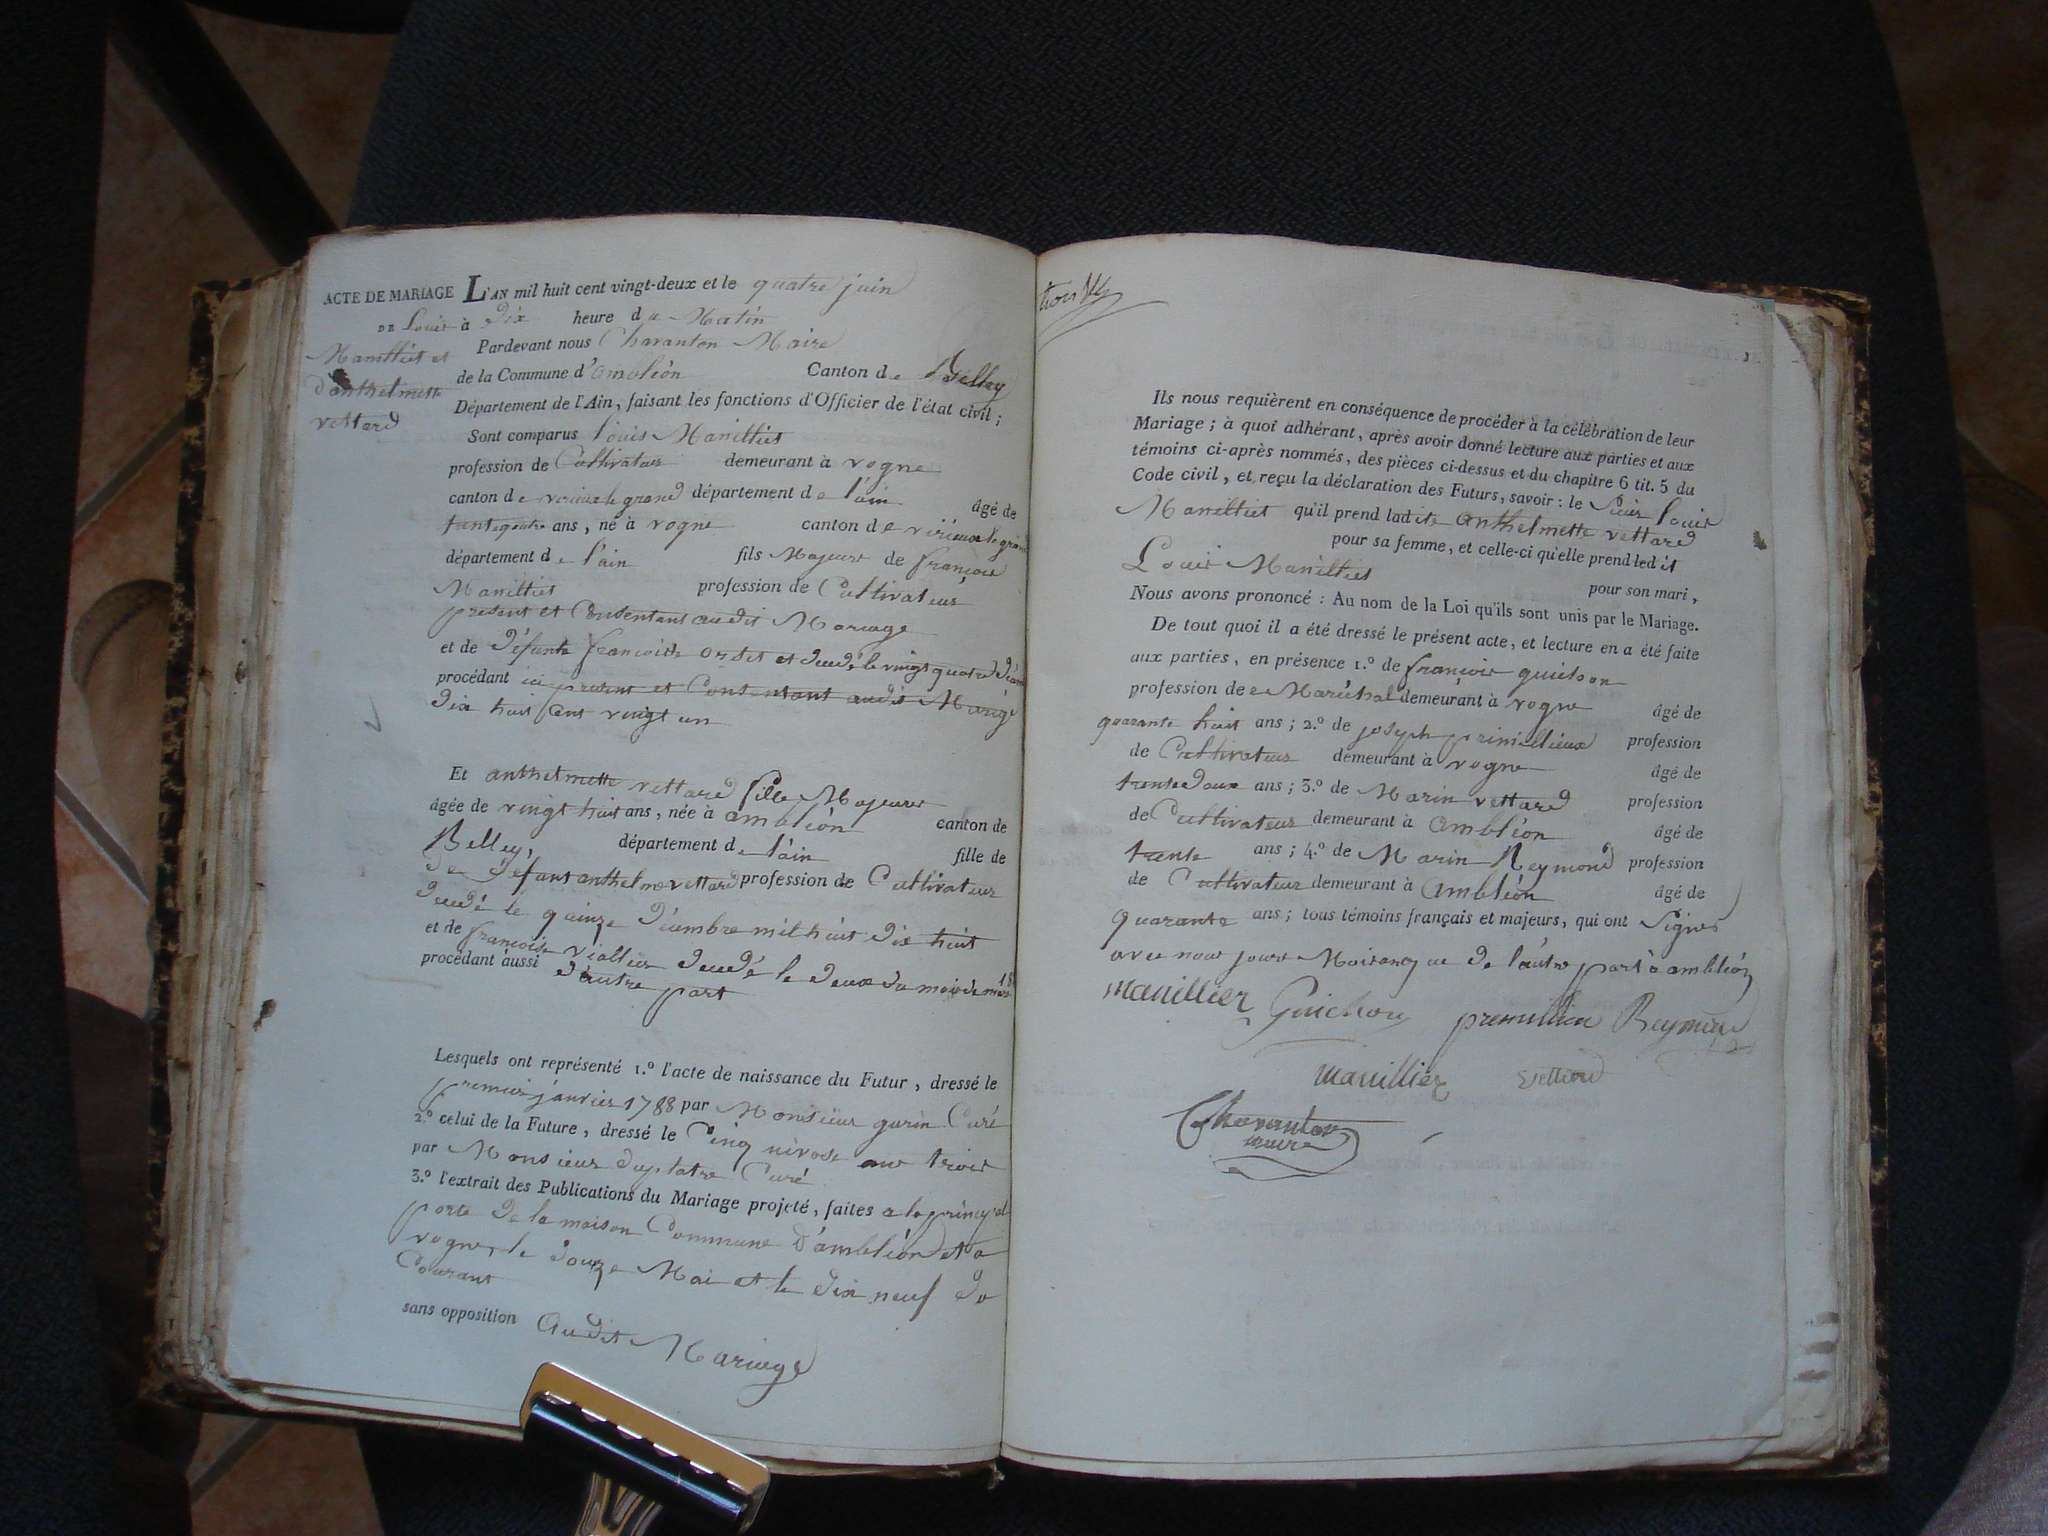 ACTE DE MARIAGE
DE Louis
Manilliet et
d'anthelmette
vettard
L'AN mil huit cent vingt-deux et le quatre juin
à Dix heure du Matin
Pardevant nous Charanton Maire
de la Commune d'ambléon Canton de Belley
Département de l'Ain, faisant les fonctions d'Officier de l'état civil;
Sont comparus Louis Manilliet
profession de Cultivateur demeurant à vogne
canton de virieu le grand département de l'ain âgé de
trente quatre ans, né à vogne canton de virieux le grand
département de l'ain fils Majeur de françois
Manilliet profession de Cultivateur
present et Consentant audit Mariage
et de Défunte françoise ordet et décédé le vingt quatre
procédant ici present et Consentant audit Mariage
Dix huit Cent vingt un
Et anthelmette vettard fille Majeure
âgée de vingt huit ans, née à ambléon canton de
Belley, département de l'ain fille de
De Défunt anthelme vettard profession de Cultivateur
décédé le quinze décembre mil huit dix huit
et de françoise viallier décédé le deux du mois de mars
procédant aussi d'autre part
Lesquels ont représenté 1.º l'acte de naissance du Futur, dressé le
premier janvier 1788 par Monsieur gurin Curé
2.º celui de la Future, dressé le Cinq nivose an trois
par Monsieur duplatre Curé
3.º l'extrait des Publications du Mariage projeté, faites a la principal
porte de la maison Commune d'ambléon et a
vogne, le douze Mai et le dix neuf du
Courant
sans opposition Audit Mariage
Ils nous requièrent en conséquence de procéder à la célébration de leur
Mariage; à quoi adhérant, après avoir donné lecture aux parties et aux
témoins ci-après nommés, des pièces ci-dessus et du chapitre 6 tit. 5 du
Code civil, et reçu la déclaration des Futurs, savoir: le Sieur Louis
Manilliet qu'il prend ladite anthelmette vettard
pour sa femme, et celle-ci qu'elle prend ledit
Louis Manilliet pour son mari,
Nous avons prononcé: Au nom de la Loi qu'ils sont unis par le Mariage.
De tout quoi il a été dressé le présent acte, et lecture en a été faite
aux parties, en présence 1.º de françois guichon
profession de Maréchal demeurant à vogne âgé de
quarante huit ans; 2.º de joseph primilieux profession
de Cultivateur demeurant à vogne âgé de
trente deux ans; 3.º de Marin vettard profession
de Cultivateur demeurant à ambléon âgé de
trente ans; 4.º de Marin Reymond profession
de Cultivateur demeurant à ambléon âgé de
quarante ans; tous témoins français et majeurs, qui ont Signé
avec nous jour Mois an que de l'autre part à ambléon
manillier Guichon premillieu Reymond
manillier vettard
Charanton
maire